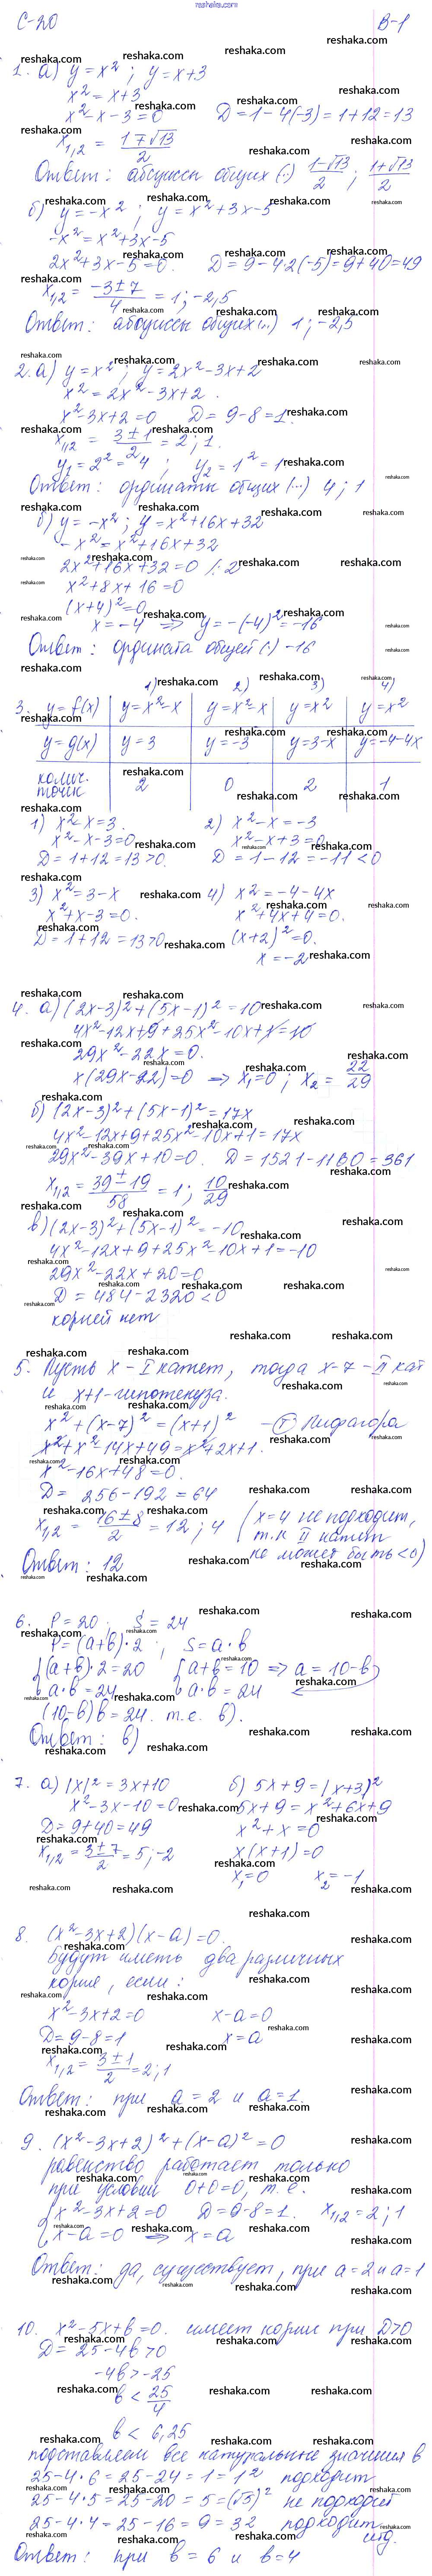 reshaka.com
С-20 В-1
1. а) y = x² ; y = x+3
x² = x+3
x²-x-3=0 D=1-4(-3)=1+12=13
x₁,₂ = (1∓√13)/2
Ответ: абсциссы общих (·) (1-√13)/2 ; (1+√13)/2
б) y=-x² ; y=x²+3x-5
-x²=x²+3x-5
2x²+3x-5=0. D=9-4·2(-5)=9+40=49
x₁,₂ = (-3±7)/4 = 1; -2,5
Ответ: абсциссы общих(..) 1; -2,5
2. а) y=x² ; y=2x²-3x+2
x²=2x²-3x+2.
x²-3x+2=0 D=9-8=1.
x₁,₂ = (3±1)/2 = 2; 1.
y₁=2²=4 ; y₂=1²=1
Ответ: ординаты общих (..) 4; 1
б) y=-x² ; y=x²+16x+32
-x²=x²+16x+32
2x²+16x+32=0 /:2
x²+8x+16=0
(x+4)²=0
x=-4 ⇒ y=-(-4)²=-16
Ответ: ордината общей (·) -16
1) 2) 3) 4)
3. y=f(x) y=x²-x y=x²-x y=x² y=x²
y=g(x) y=3 y=-3 y=3-x y=-4-4x
колич. точек 2 0 2 1
1) x²-x=3. 2) x²-x=-3
x²-x-3=0 x²-x+3=0
D=1+12=13>0. D=1-12=-11<0
3) x²=3-x 4) x²=-4-4x
x²+x-3=0. x²+4x+4=0.
D=1+12=13>0 (x+2)²=0.
x=-2
4. а) (2x-3)²+(5x-1)²=10
4x²-12x+9+25x²-10x+1=10
29x²-22x=0.
x(29x-22)=0 ⇒ x₁=0 ; x₂= 22/29
б) (2x-3)²+(5x-1)²=17x
4x²-12x+9+25x²-10x+1=17x
29x²-39x+10=0. D=1521-1160=361
x₁,₂ = (39±19)/58 = 1; 10/29
в) (2x-3)²+(5x-1)²=-10
4x²-12x+9+25x²-10x+1=-10
29x²-22x+20=0
D=484-2320<0
корней нет
5. Пусть x - I катет, тогда x-7 - II кат
и x+1-гипотенуза.
x²+(x-7)²=(x+1)² - Т Пифагора
x²+x²-14x+49=x²+2x+1.
x²-16x+48=0.
D= 256-192=64
x₁,₂ = (16±8)/2 = 12; 4 (x=4 не подходит,
т.к. II катет
не может быть <0)
Ответ: 12
6. P=20 ; S=24
P=(a+b)·2 ; S=a·b
{(a+b)·2=20 {a+b=10 ⇒ a=10-b
{a·b=24 {a·b=24
(10-b)b=24. т.е. в).
Ответ: в)
7. а) |x|²=3x+10 б) 5x+9=(x+3)²
x²-3x-10=0 5x+9=x²+6x+9
D=9+40=49 x²+x=0
x₁,₂ = (3±7)/2 = 5; -2 x(x+1)=0
x₁=0 x₂=-1
8. (x²-3x+2)(x-a)=0.
будут иметь два различных
корня, если:
x²-3x+2=0 x-a=0
D=9-8=1 x=a
x₁,₂ = (3±1)/2 = 2; 1
Ответ: при a=2 и a=1.
9. (x²-3x+2)²+(x-a)²=0
равенство работает только
при условии 0+0=0, т.е.
{x²-3x+2=0 D=9-8=1. x₁,₂=2; 1
{x-a=0 ⇒ x=a
Ответ: да, существует, при a=2 и a=1
10. x²-5x+b=0. имеет корни при D>0
D=25-4b>0
-4b>-25
b< 25/4
b<6,25
подставляем все натуральные значения b
25-4·6=25-24=1=1² подходит
25-4·5=25-20=5=(√5)² не подходит
25-4·4=25-16=9=3² подходит
итд.
Ответ: при b=6 и b=4